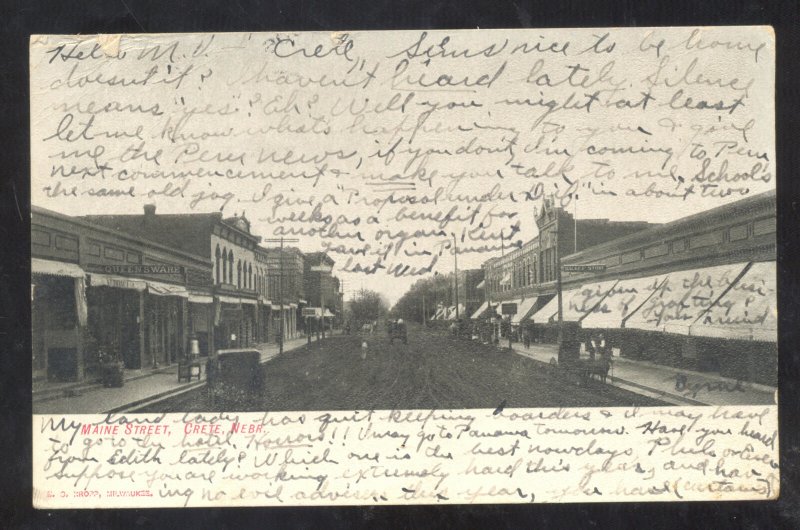 Hello M.V. Crete, Seems nice to be home
doesn't it? I haven't heard lately. Silence
means "yes"? Eh? Well you might at least
let me know whats happening to you & give
me the Peru news, if you dont, I'm coming to Peru
next commencement & make you talk to me. School's
the same old jog. I give a "Proposal under Dif." in about two
weeks as a benefit for
another organ. Kent
gave it in Panama
last Wed
QUEENSWARE
given up the busi-
ness of getting
your a mind
Byrne
My land lady has quit keeping boarders & I may have
MAINE STREET, CRETE, NEBR.
to go to the hotel. Horrors!! I may go to Panama tomorrow. Have you heard
from Edith lately? Which one is the best nowdays, Phils or Ever
suppose you are working extremely hard this year, and hav-
E. C. KROPP, MILWAUKEE.
ing no evil adviser this year, you have (curtains)